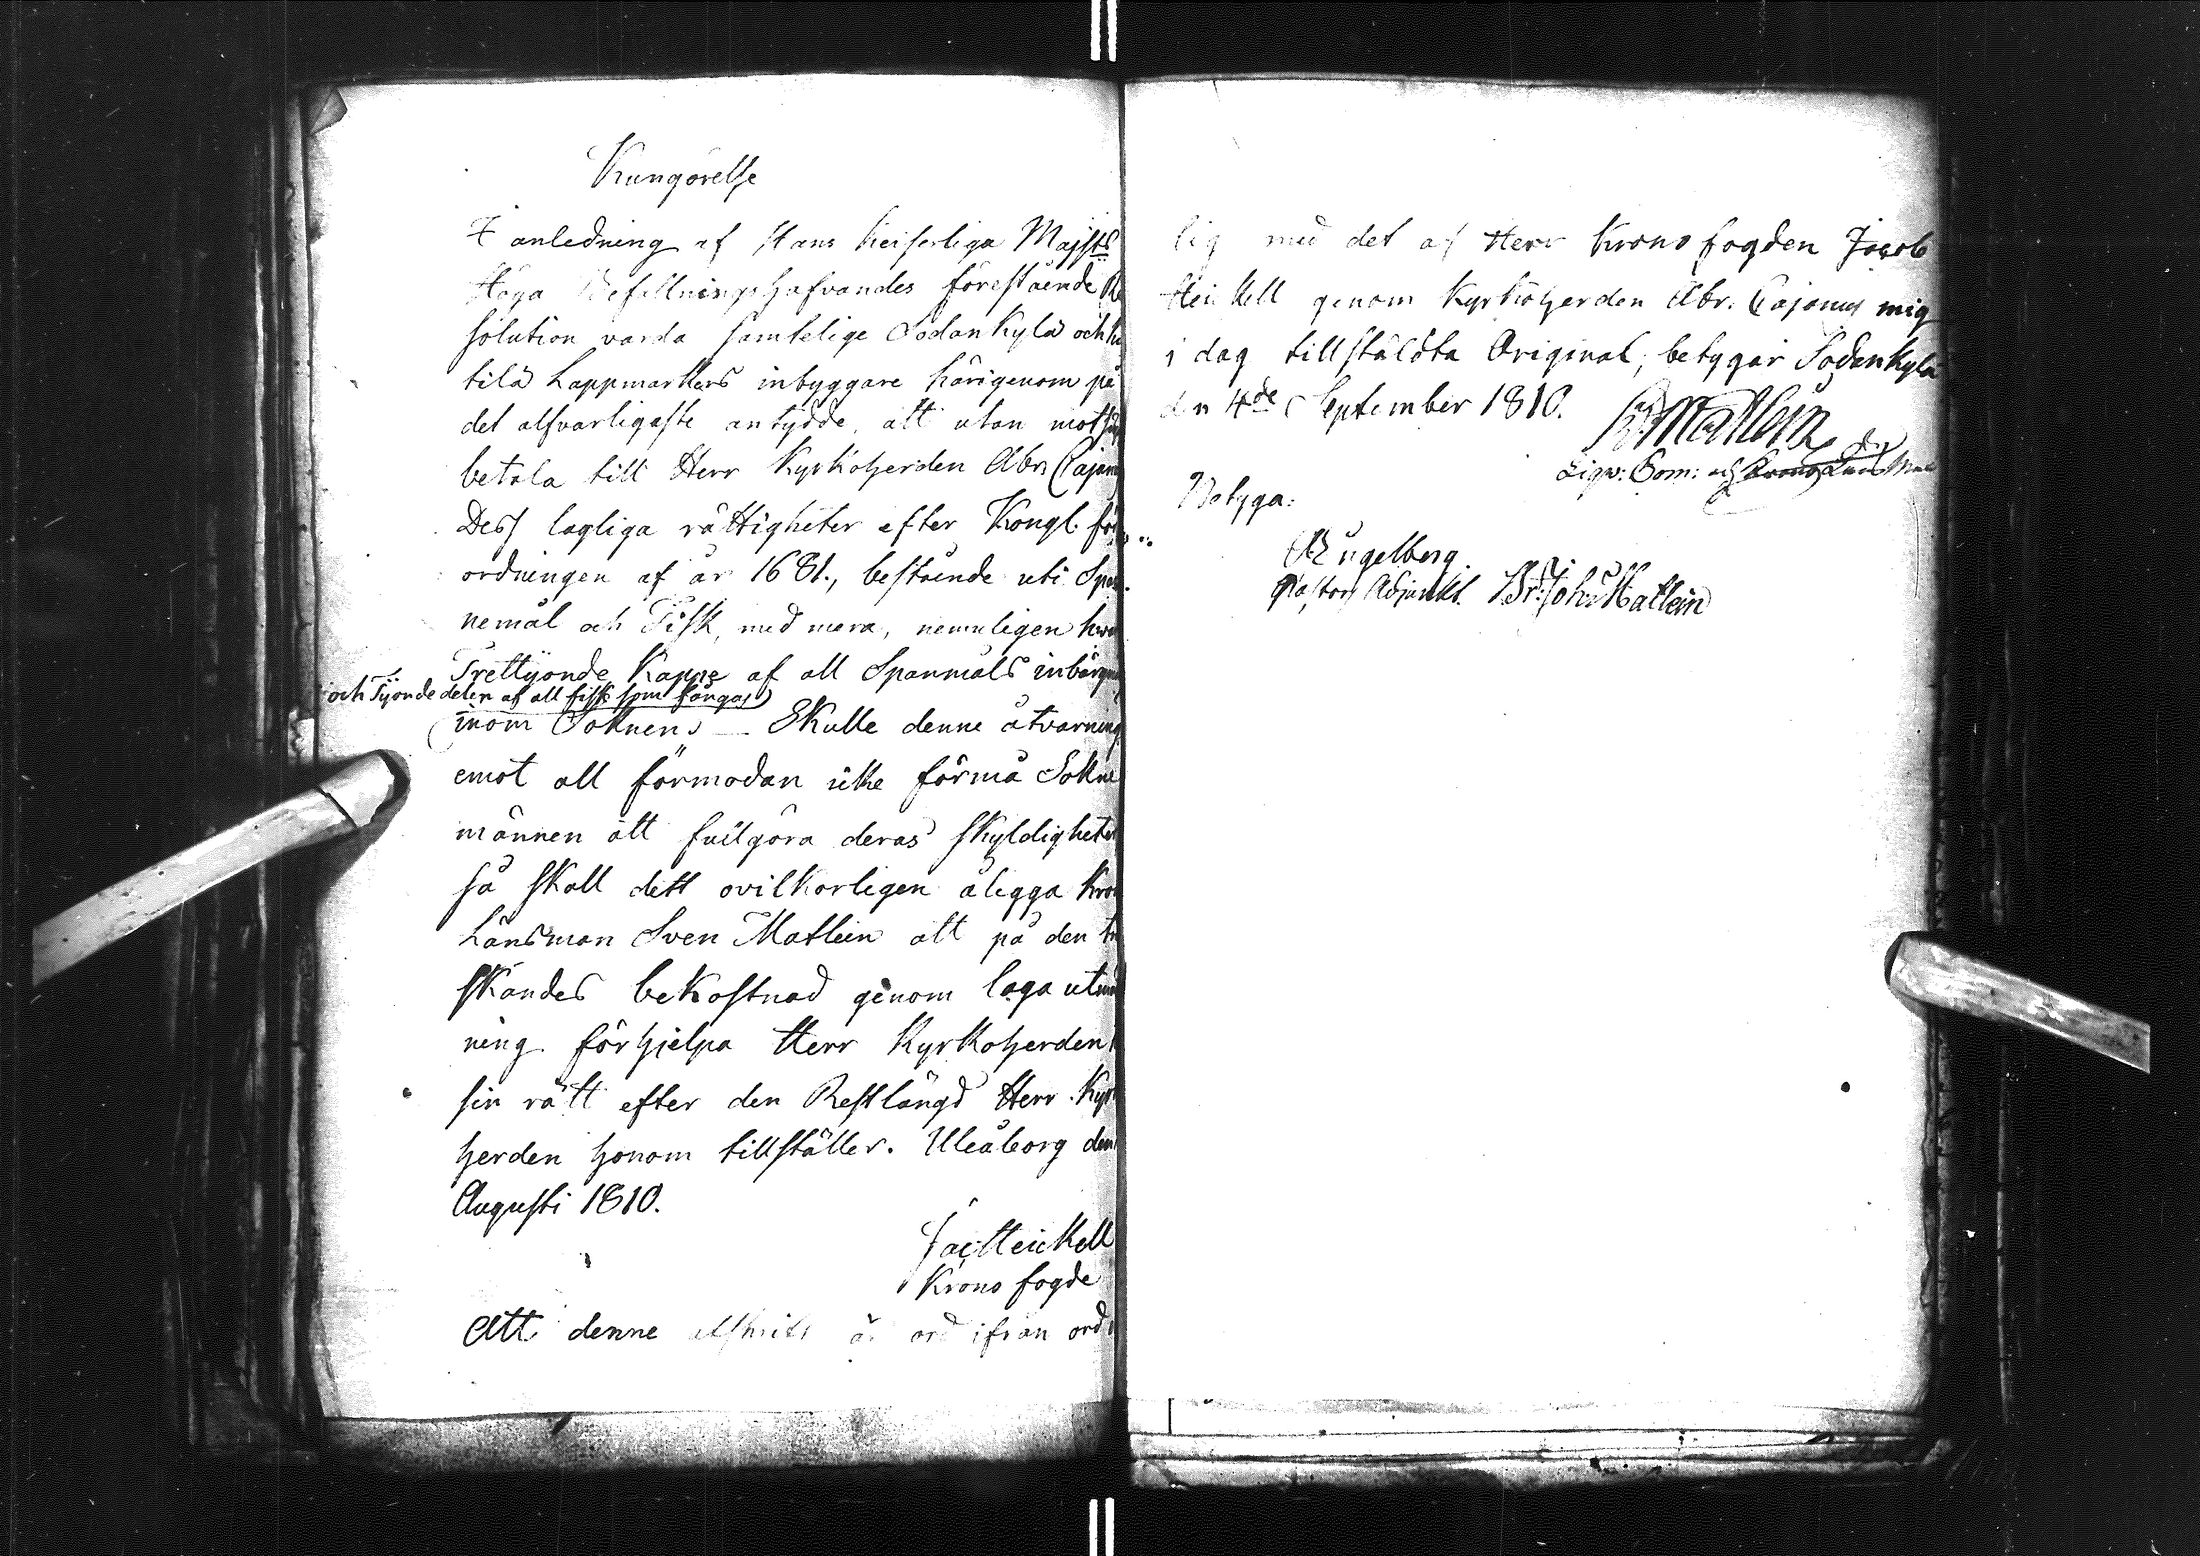 Kungörelse
I anledning af Hans Keiserliga Majsts
Höga Befallningshafvandes förestående Re
solution varda samtelige Sodankylä och
tilä Lappmarkers inbyggare härigenom på
det alfvarligaste antydde, att utan
betala till Herr Kyrkoherden Abr. Cajan
Dess lagliga rättigheter efter Kongl. för
ordningen af år 1681., bestående uti Span
nemål och Fisk, med mera, nemuligen hvar
Trettijonde Kappe af all Spanmåls inbärgn
och Tijonde delen af all fisk som fångas
inom Soknen. Skulle denne åtvarning
emot all förmodan icke förmå Sokne
männen att fullgöra deras skyldighete
så skall dett ovilkorligen åligga Kro
Länsman Sven Matlein att på den tr
skandes bekostnad genom laga utmät
ning förhjelpa Herr Kyrkoherden
sin rätt efter den Restlängd Herr Kyrk
herden honom tillställer. Uleåborg den
Augusti 1810.
Jac Heickell
Krono fogde
Att denne afskrift är ord ifrån ord
lig med det af Herr Krono fogden Jacob
Heickell genom Kyrkoherden Abr. Cajanus mig
i dag tillstäldta Original, betygar Sodankylä
den 4de September 1810.
Sv. Matlein
Betyga:
Engelberg
Pastors Adjunkt. Johan Matlein